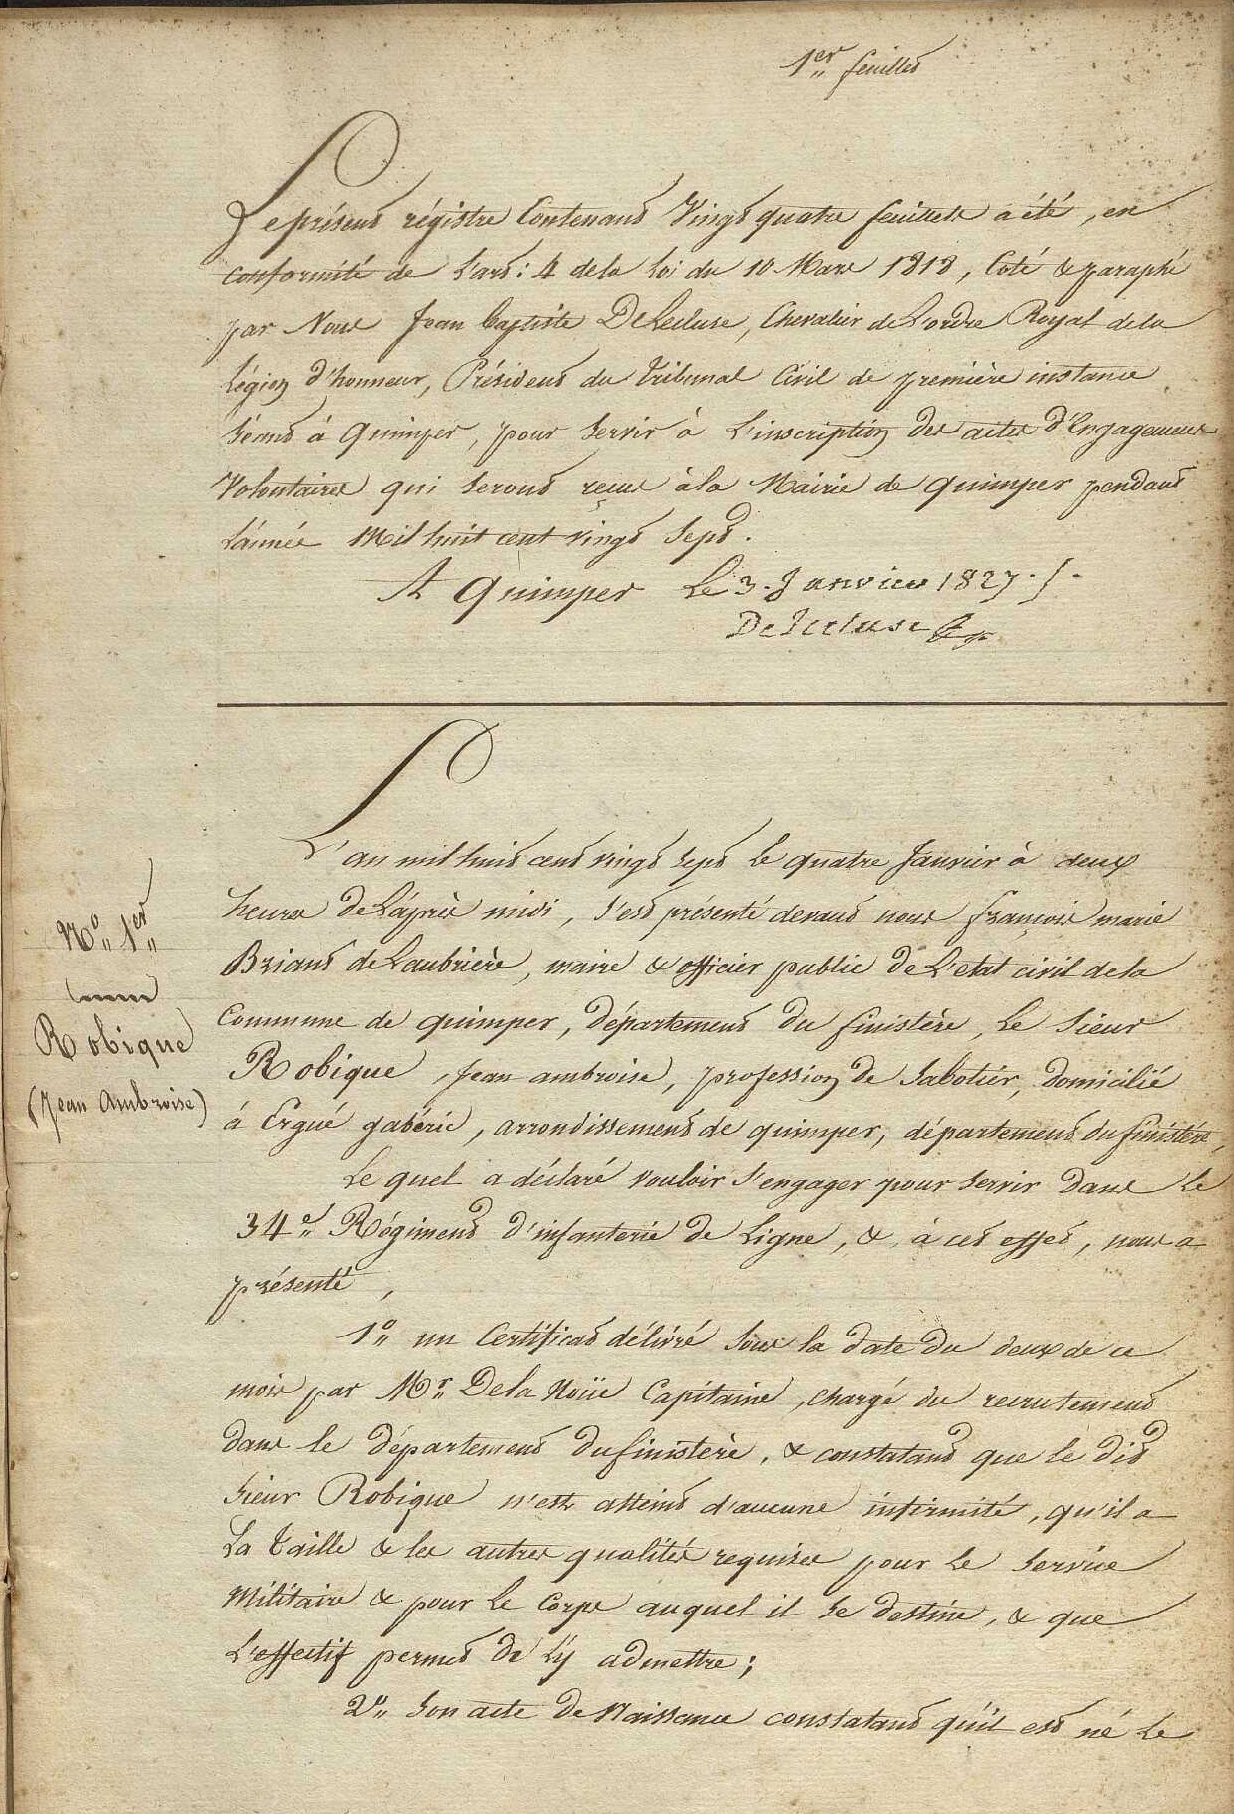 1er,, feuillet
Le présent régistre Contenant Vingt quatre feuillets a été, en
conformité de L'art: 4 de la Loi du 10 Mars 1818, Coté & paraphé
par Nous Jean Baptiste DeLecluse, Chevalier de L'ordre Royal de la
Légion d'honneur, Président du Tribunal Civil de première instance
Séant à Quimper, pour Servir à L'inscription des actes d'Engagements
Volontaires qui Seront reçus à la Mairie de Quimper pendant
L'année Mil huit cent vingt Sept.
A Quimper Le 3 Janvier 1827
DeLecluse
L'an mil huit cent vingt Sept Le quatre Janvier à deux
heures de L'après midi, S'est présenté devant nous françois marie
Briant de Laubrière, maire & officier public de L'etat civil de la
Commune de Quimper, département du finistère, Le Sieur
N° 1er,,
Robique
(Jean Ambroise)
Robique, Jean ambroise, profession de Sabotier, domicilié
à Ergué gabéric, arrondissement de quimper, département du finistère,
Le quel a déclaré vouloir S'engager pour Servir Dans Le
34e,, Régiment d'infanterie de Ligne, & à cet effet, nous a
présenté,
1°,, un Certificat délivré Sous la date du deux de ce
mois par Mr,, De la Noüe Capitaine, chargé du recrutement
dans le département du finistère, & constatant que le dit
Sieur Robique n'est atteint d'aucune infirmité, qu'il a
La Taille & les autres qualités requises pour Le Service
Militaire & pour Le Corps auquel il Se destine, & que
L'effectif permet de L'y admettre;
2°,, Son acte de Naissance constatant qu'il est né Le